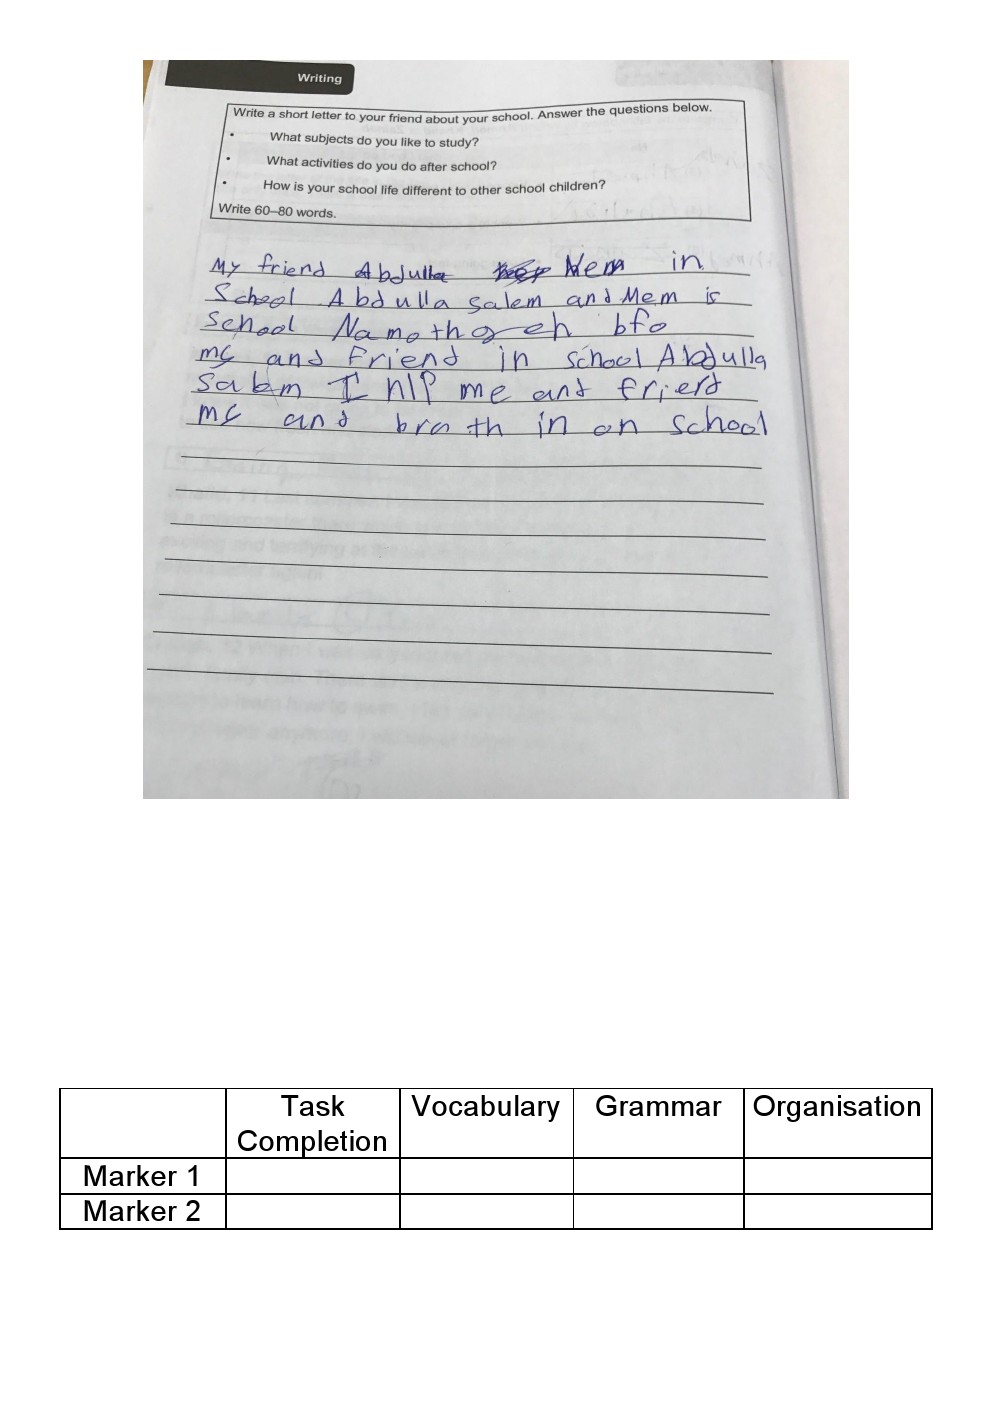 Writing
Write a short letter to your friend about your school. Answer the questions below.
• What subjects do you like to study?
• What activities do you do after school?
• How is your school life different to other school children?
Write 60–80 words.
My friend Abdulla Nem in
School Abdulla Salem and Mem is
School bfo
my and Friend in school Abdulla
Salem I hlP me and frierd
my and brath in on school
Task Completion Vocabulary Grammar Organisation
Marker 1
Marker 2